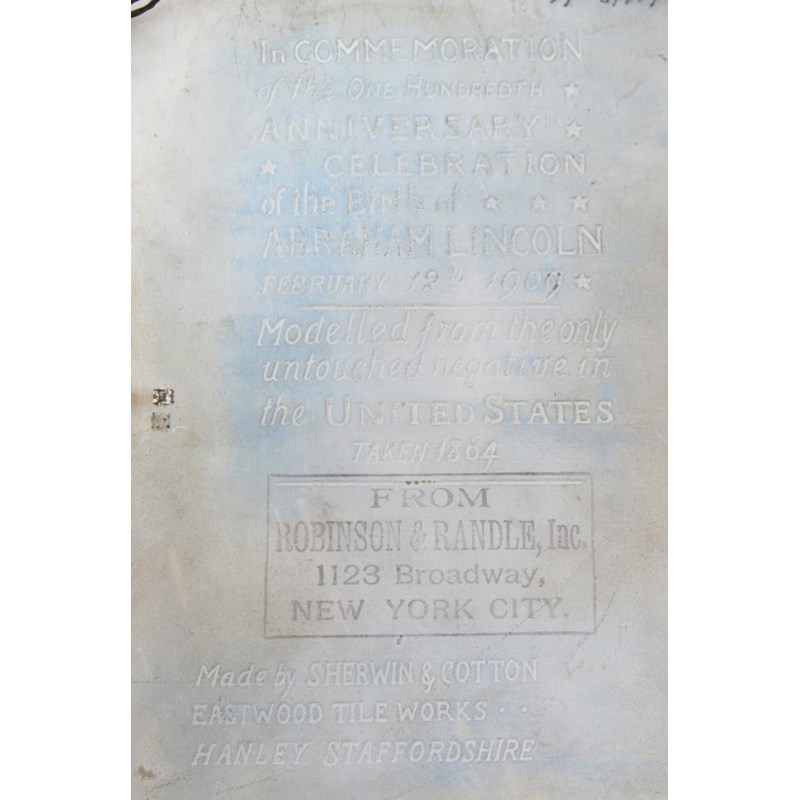 In COMMEMORATION
of the ONE HUNDREDTH ★
ANNIVERSARY ★
★ CELEBRATION
of the Birth of ★ ★ ★
ABRAHAM LINCOLN
FEBRUARY 12TH 1909 ★
Modelled from the only
untouched negative in
the UNITED STATES
TAKEN 1864
FROM
ROBINSON & RANDLE, Inc.
1123 Broadway,
NEW YORK CITY.
Made by SHERWIN & COTTON
EASTWOOD TILE WORKS · ·
HANLEY STAFFORDSHIRE